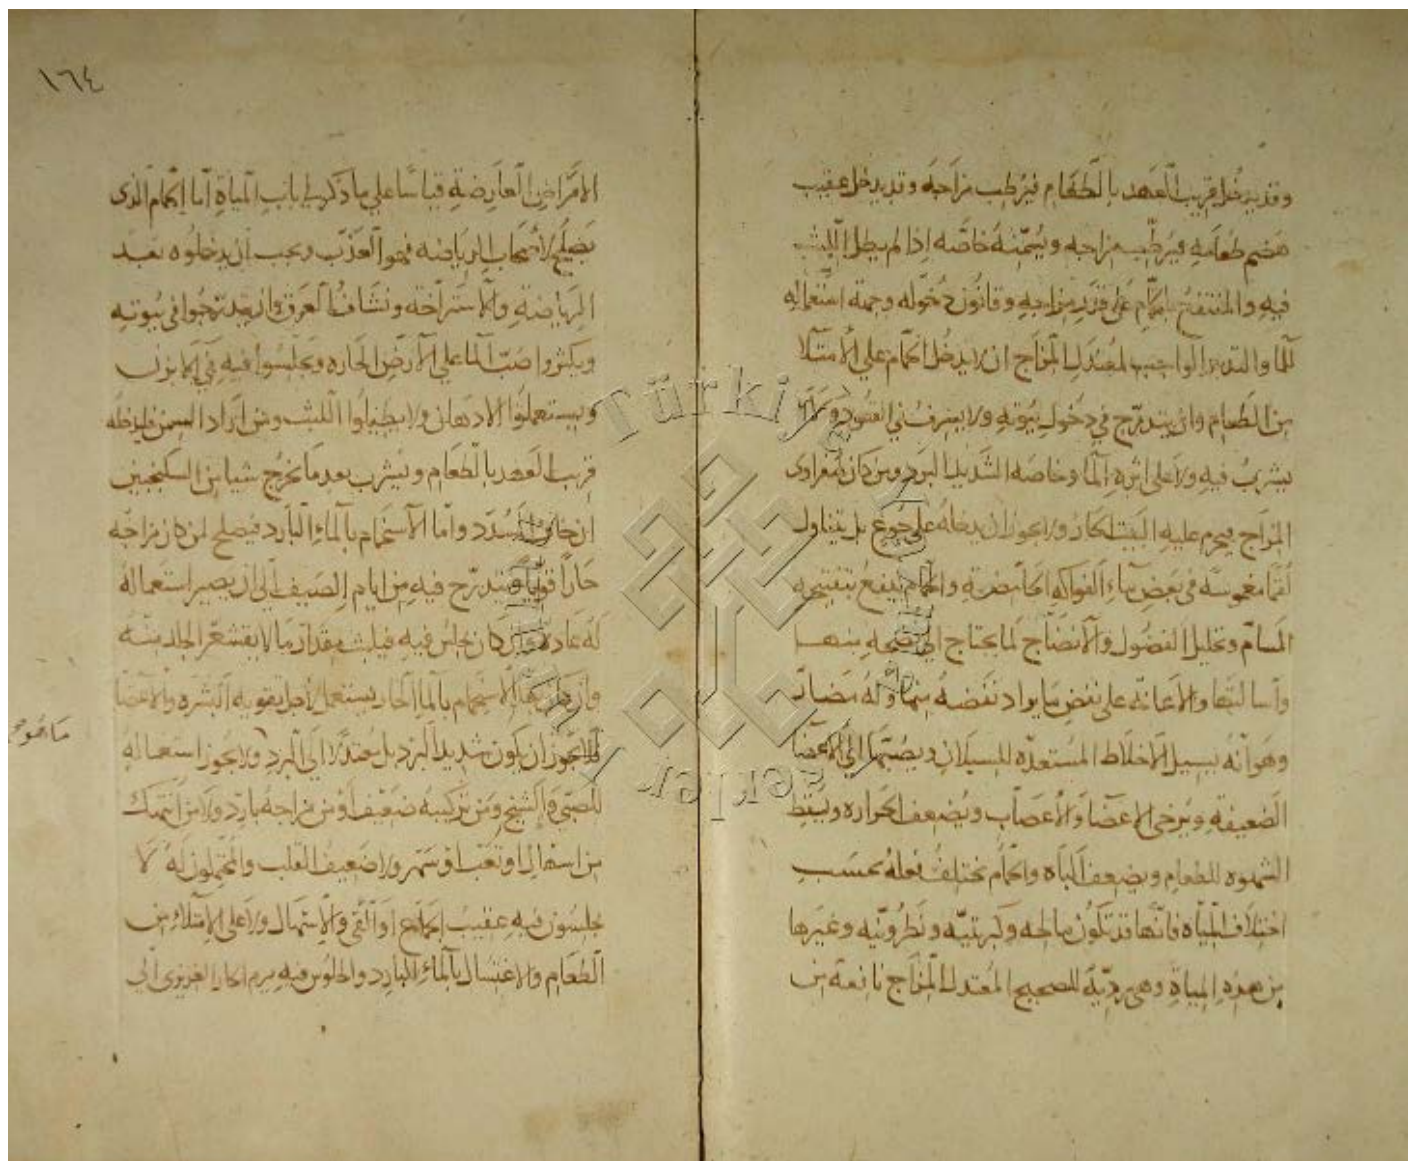 وقد يدخل قريب العهد بالطعام فيرطب مزاجه وقد يدخل عقيب
هضم طعامه فيرطب مزاجه ويسمنه خاصه اذا لم يطل اللبث
فيه والمنتفع بالحمام على قدر مزاجه وقانون دخوله وجهة استعماله
للما والتدبير الواجب لمعتدل المزاج ان لا يدخل الحمام علي الامتلا
من الطعام وان يتدرج في دخول بيوته ولا يسرف في القعود
يشرب فيه ولا على اثره الما وخاصه الشديد البرد ومن كان صفراوى
المزاج فيحرم عليه البيت الحار ولا يجوز ان يدخله على جوع بل يتناول
لقما مغموسه في بعض ماء الفواكه الحامضة والحمام ينفع بتفتيحه
المسام وتحليل الفضول والانضاج لما يحتاج الى نضجه منها
واسالتها والاعانه على نفض ما يراد نفضه منها وله مضار
وهو انه يسيل الاخلاط المستعده للسيلان ويصبها الى الاعضا
الضعيفة ويرخى الاعضا والاعصاب ويضعف الحراره ويسقط
الشهوه للطعام ويضعف الباه والحمام يختلف فعله بحسب
اختلاف المياه فانها قد تكون مالحه وكبرتيه ونطرونيه وغيرها
من هذه المياة وهي رديّة للصحيح المعتدل المزاج نافعة من
١٦٤
الامراض العارضة قياسا على ما ذكر في باب المياة اما الحمام الذى
يصلح لاصحاب الرياضه فهو العذب ويجب ان يدخلوه بعد
الرياضة والاستراحة ونشاف العرق وان يتدرجوا في بيوته
ويكثروا صب الما على الارض الحاره ويجلسوا فيه في الابزن
ويستعملوا الادهان ولا يطيلوا اللبث ومن اراد السمن فليدخله
قريب العهد بالطعام ويشرب بعد ما يخرج شيا من السكنجبين
ان خاف السدد واما الاستحمام بالماء البارد فيصلح لمن كان مزاجه
حارا قويا ويتدرج فيه من ايام الصيف الى ان يصير استعماله
له عادة وان كان يجلس فيه فيلبث مقدار ما لا يقشعر الجلد منه
وان كان هذا الاستحمام بالما البارد يستعمل لاجل تقويه البشره والاعضا
فلا يجوز ان يكون شديد البرد بل معتدلا الى البرد ولا يجوز استعماله
للصبي والشيخ ومن تركيبه ضعيف او من مزاجه بارد ولا من انتهك
من اسهال او تعب او سهر ولا ضعيف القلب والمحتملون له لا
يجلسون فيه عقيب الجماع او القى والاسهال ولا على الامتلاء من
الطعام والاغتسال بالماء البارد والجلوس فيه يرم الحار الغريزى الي